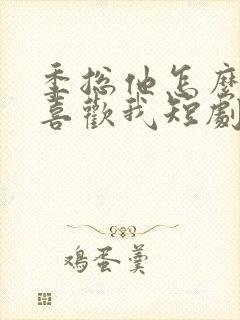 季总他怎麼
喜歡我短劇
鸡蛋羹